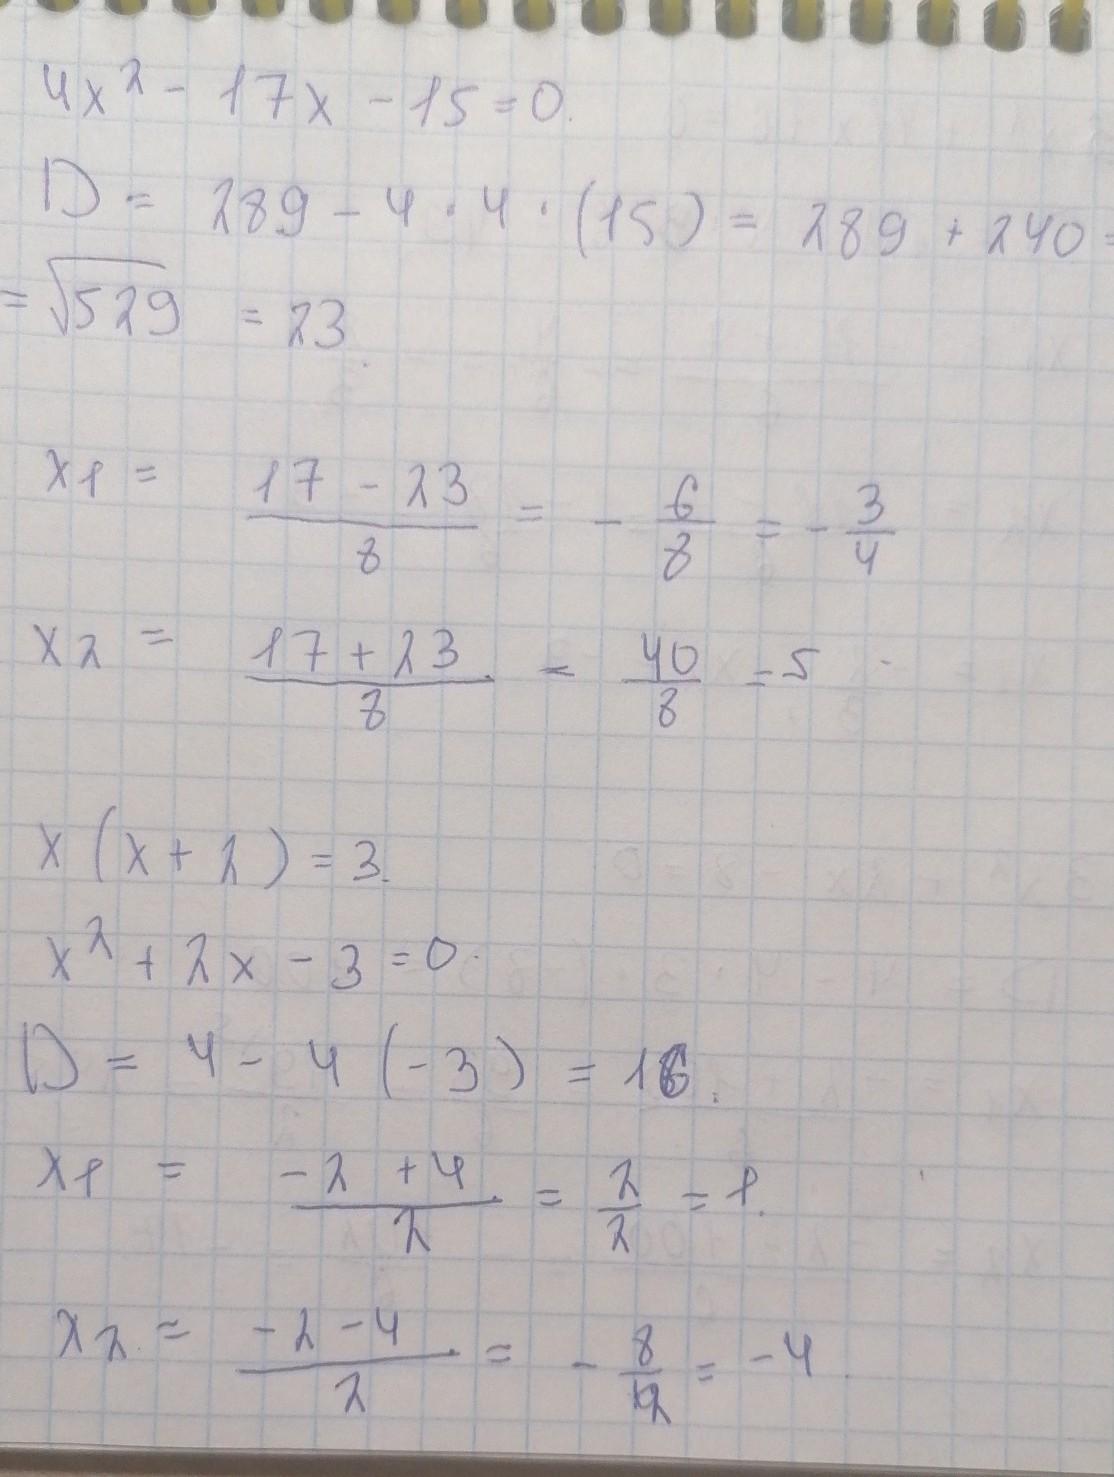 4x² - 17x - 15 = 0.
D = 289 - 4 · 4 · (15) = 289 + 240 =
= √529 = 23.
x1 = (17 - 23)/8 = - 6/8 = - 3/4
x2 = (17 + 23)/8 = 40/8 = 5
x(x + 2) = 3.
x² + 2x - 3 = 0.
D = 4 - 4(-3) = 16.
x1 = (-2 + 4)/2 = 2/2 = 1.
x2 = (-2 - 4)/2 = - 8/2 = -4